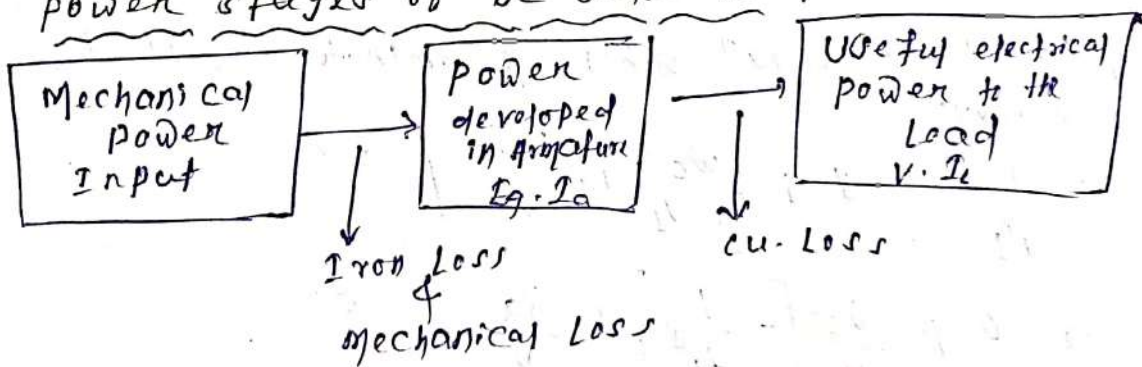 power stages of
Mechanical
power
Input
power
developed
in Armature
Eg. Ia
Useful electrical
power to the
Load
V. IL
Iron Loss
&
Mechanical Loss
cu. Loss